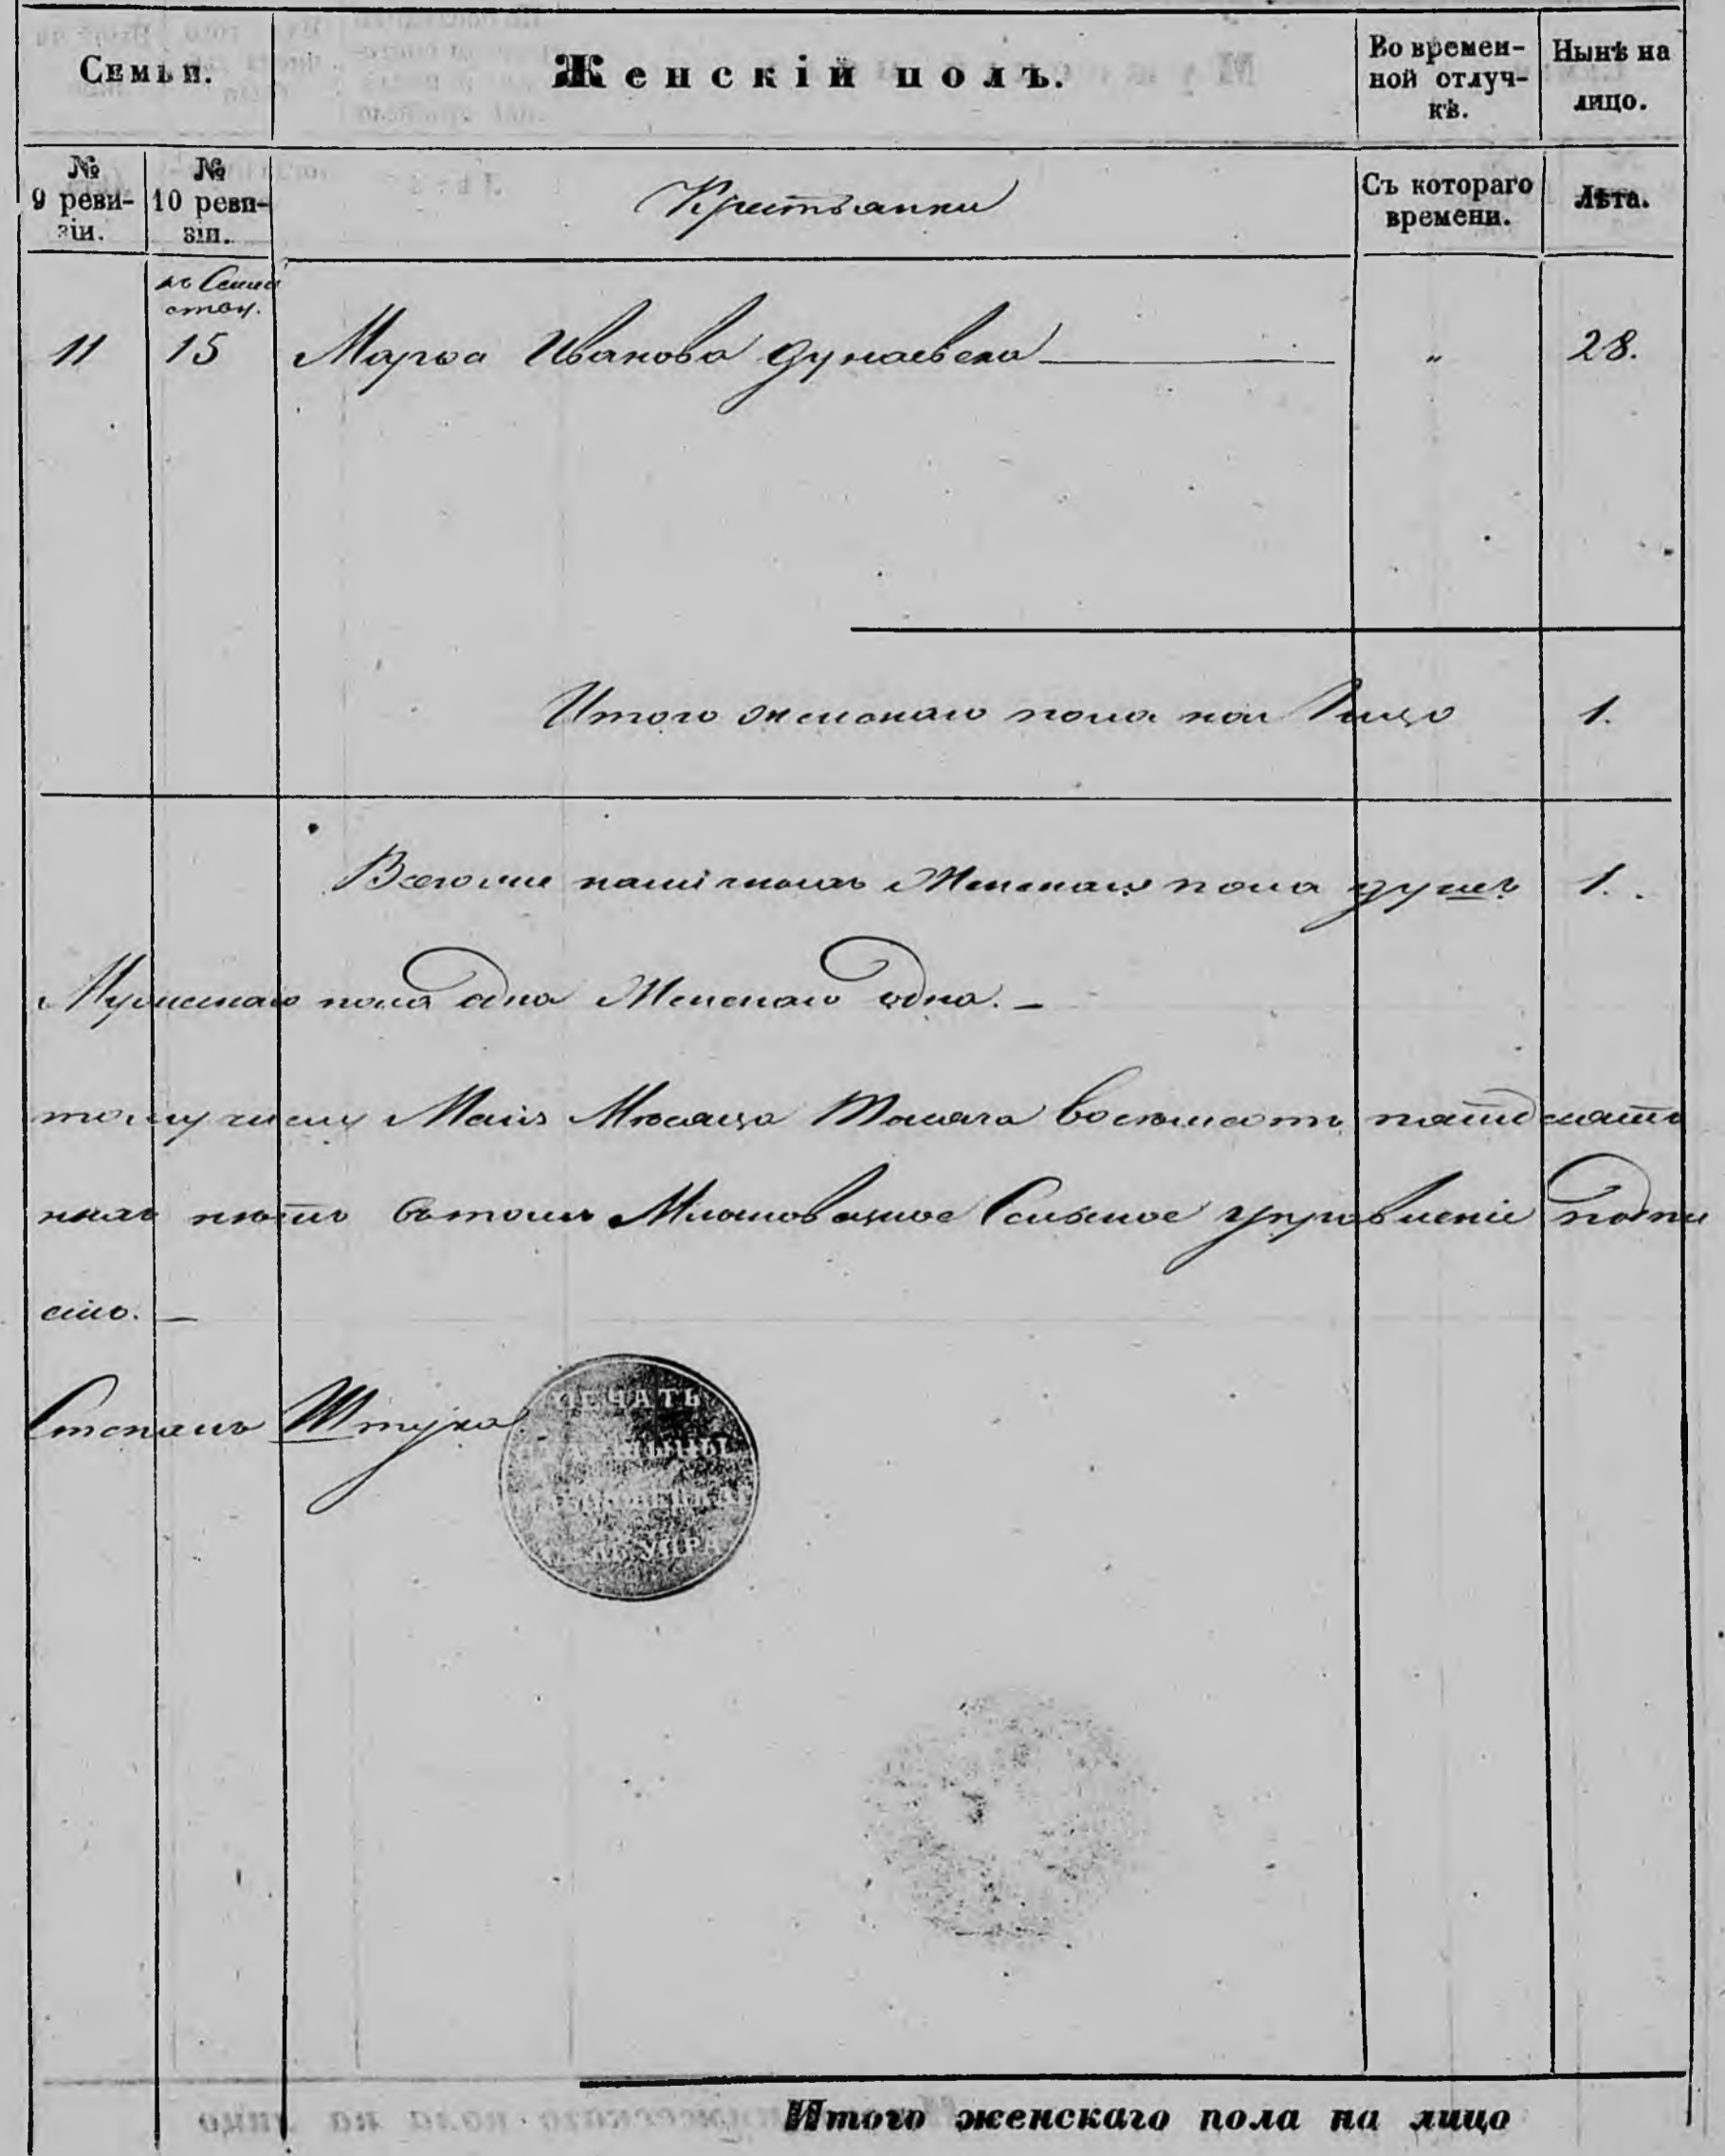 Семьи.
Женскій полъ.
Во времен-
ной отлуч-
кѣ.
Нынѣ на
лицо.
№
9 реви-
зіи.
№
10 реви-
зіи.
Крестьянки
Съ котораго
времени.
Лѣта.
11 15 Марѳа Иванова Дунаевска „ 28.
Итого женскаго пола на Лицо 1.
женскаго пола душъ 1.
Мужескаго пола одна Женскаго одна. —
Маія Мѣсяца Тысяча восемьсотъ пятдесятъ
Сельское управленіе подпи
сано. —
Степанъ Штука
ПЕЧАТЬ
УПРА
Итого женскаго пола на лицо